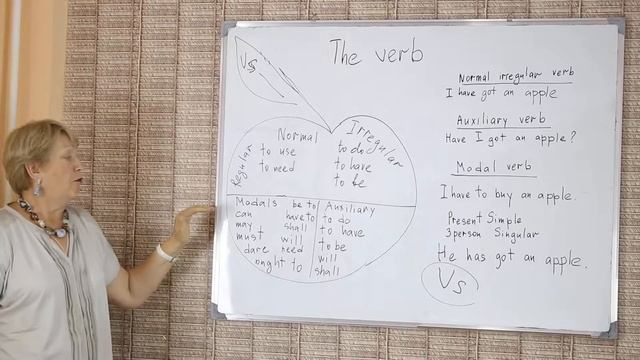 The verb
Vs
Normal
Regular
Irregular
to use
to need
to do
to have
to be
Modals be to
can have to
may shall
must will
dare need
ought to
Auxiliary
to do
to have
to be
will
shall
Normal irregular verb
I have got an apple
Auxiliary verb
Have I got an apple?
Modal verb
I have to buy an apple.
Present Simple
3person Singular
He has got an apple.
Vs